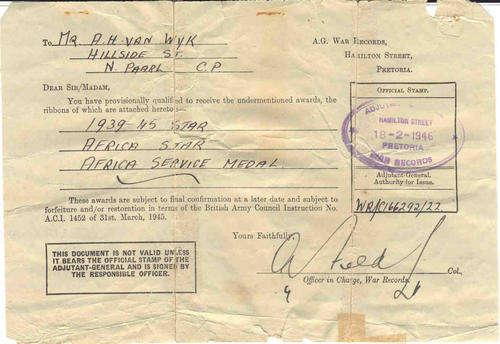 To MR. A. H. VAN WYK
HILLSIDE ST.
N. PAARL C.P.
A.G. WAR RECORDS,
HAMILTON STREET,
PRETORIA.
DEAR SIR/MADAM,
You have provisionally qualified to receive the undermentioned awards, the
ribbons of which are attached hereto:—
1939-45 STAR
AFRICA STAR
AFRICA SERVICE MEDAL
OFFICIAL STAMP.
HAMILTON STREET
18-2-1946
PRETORIA
WAR RECORDS
Adjutant-General.
Authority for Issue.
WR/C166292/22
These awards are subject to final confirmation at a later date and subject to
forfeiture and/or restoration in terms of the British Army Council Instruction No.
A.C.I. 1452 of 31st. March, 1945.
Yours Faithfully,
Col.,
Officer in Charge, War Records.
THIS DOCUMENT IS NOT VALID UNLESS
IT BEARS THE OFFICIAL STAMP OF THE
ADJUTANT-GENERAL AND IS SIGNED BY
THE RESPONSIBLE OFFICER.